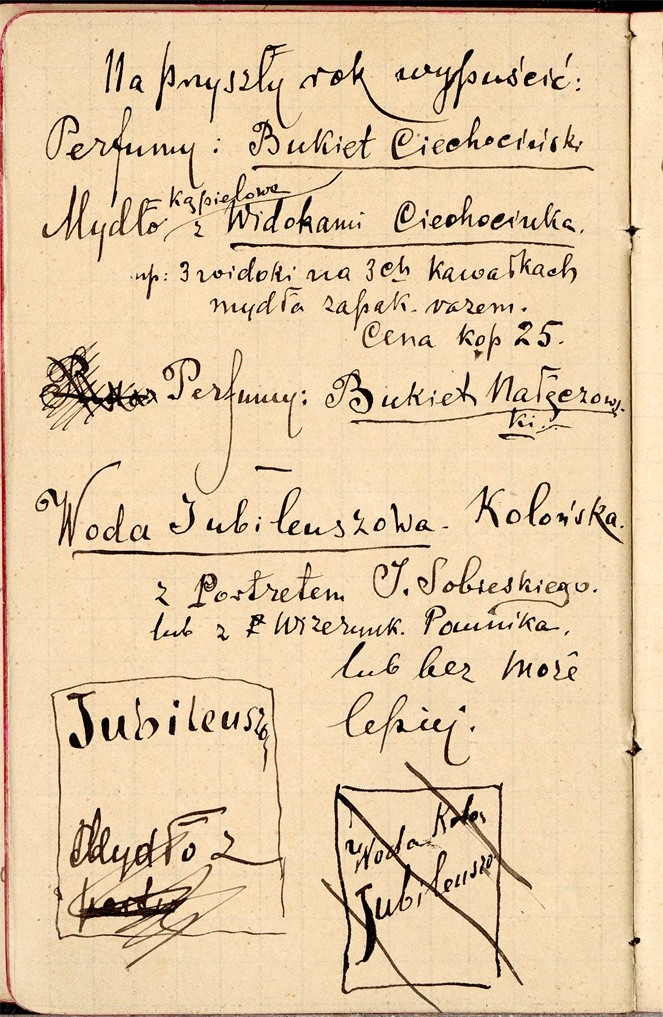 Na przyszły rok wypuścić:
Perfumy: Bukiet Ciechociński
kąpielowe
Mydło z Widokami Ciechocinka.
np: 3 widoki na 3ch kawałkach
mydła zapak. razem.
Cena kop 25.
Perfumy: Bukiet Nałęczows-
ki.
Woda Jubileuszowa - Kolońska.
z Portretem J. Sobieskiego.
lub z Wizerunk. Pomnika.
lub bez może
lepiej.
Jubileusz
Mydło z
Woda Kolos
Jubileuszo